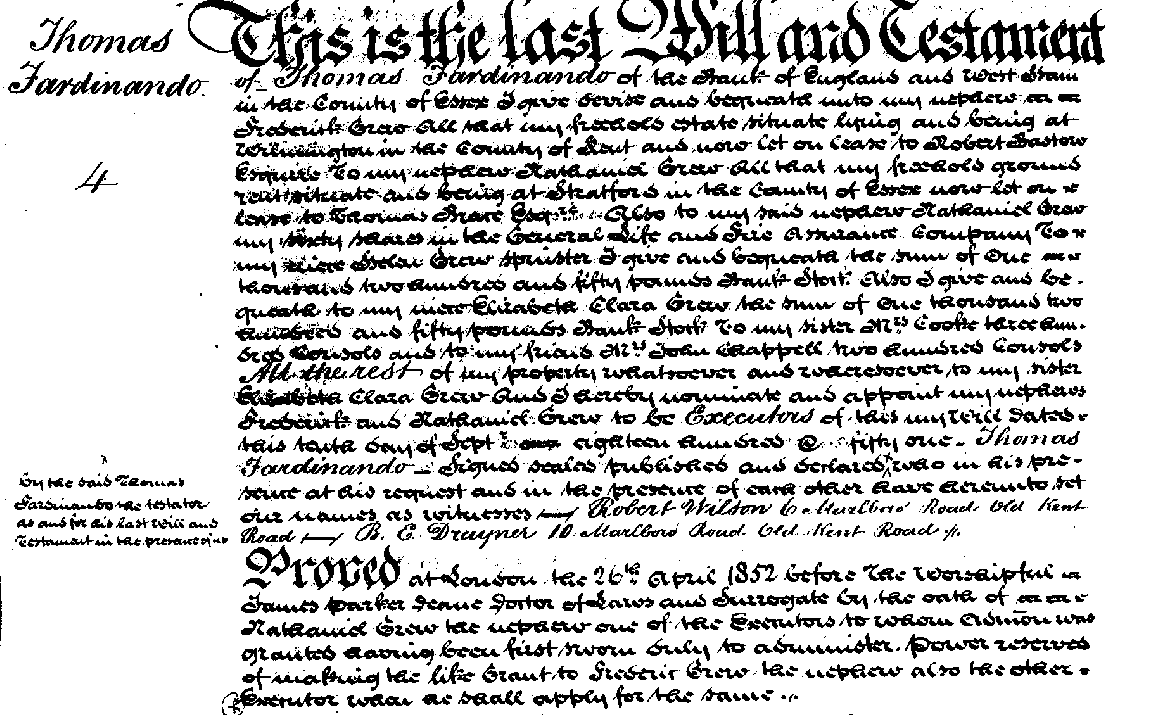 Thomas
Fardinando
4
This is the last Will and Testament
of Thomas Fardinando of the Bank of England and West Ham
in the County of Essex I give devise and bequeath unto my nephew
Frederick Grew All that my freehold estate situate lying and being at
Wilmington in the County of Kent and now let on lease to Robert Bastow
Esquire To my nephew Nathaniel Grew All that my freehold ground
rent situate and being at Stratford in the County of Essex now let on
lease to Thomas Brace Esqre Also to my said nephew Nathaniel Grew
my sixty shares in the General Life and Fire Assurance Company To
my niece Helen Grew spinster I give and bequeath the sum of One
thousand two hundred and fifty pounds Bank Stock Also I give and be-
queath to my niece Elizabeth Clara Grew the sum of One thousand two
hundred and fifty pounds Bank Stock To my sister Mrs Cooke three hun-
dred Consols and to my friend Mrs John Chappell two hundred Consols
All the rest of my property whatsoever and wheresoever to my sister
Elizabeth Clara Grew And I hereby nominate and appoint my nephews
Frederick and Nathaniel Grew to be Executors of this my Will dated
this tenth day of Sept eighteen hundred & fifty one - Thomas
Fardinando - Signed sealed published and declared who in his pre-
sence at his request and in the presence of each other have hereunto set
our names as witnesses - Robert Wilson 6 Marlbro Road Old Kent
Road - B. E. Drayner 10 Marlbro Road Old Kent Road
by the said Thomas
Fardinando the testator
as and for his last Will and
Testament in the presence of us
Proved at London the 26th April 1852 before the Worshipful
James Parker Deane Doctor of Laws and Surrogate by the oath of
Nathaniel Grew the nephew one of the Executors to whom Admon was
granted having been first sworn duly to administer. Power reserved
of making the like Grant to Frederic Grew the nephew also the other
Executor when he shall apply for the same